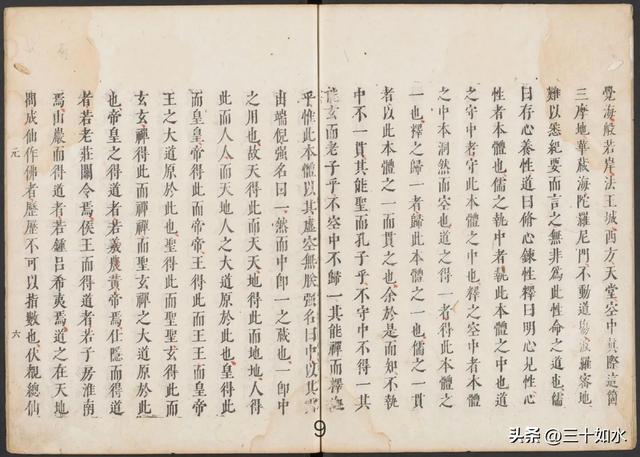 覺海般若岸法王城西方天堂空中眞際這箇
三摩地華藏海陀羅尼門不動道場波羅密地
難以悉紀要而言之無非爲此性命之道也儒
曰存心養性道曰脩心鍊性釋曰明心見性心
性者本體也儒之執中者執此本體之中也道
之守中者守此本體之中也釋之空中者本體
之中本洞然而空也道之得一者得此本體之
一也釋之歸一者歸此本體之一也儒之一貫
者以此本體之一而貫之也余於是而知不執
中不一貫其能聖而孔子乎不守中不得一其
能玄而老子乎不空中不歸一其能禪而釋迦
乎惟此本體以其虛空無朕強名曰中以其露
出端倪強名曰一然而中卽一之藏也一卽中
之用也故天得此而天天地得此而地地人得
此而人人而天地人之大道原於此也皇得此
而皇皇帝得此而帝帝王得此而王王而皇帝
王之大道原於此也聖得此而聖聖玄得此而
玄玄禪得此而禪禪而聖玄禪之大道原於此
也帝皇之得道者若羲農黃帝焉仕隱而得道
者若老莊關令焉侯王而得道者若子房淮南
焉山巖而得道者若鍾呂希夷焉道之在天地
間成仙作佛者歷歷不可以指數也伏觀總仙
元 六
9
头条 @三十如水